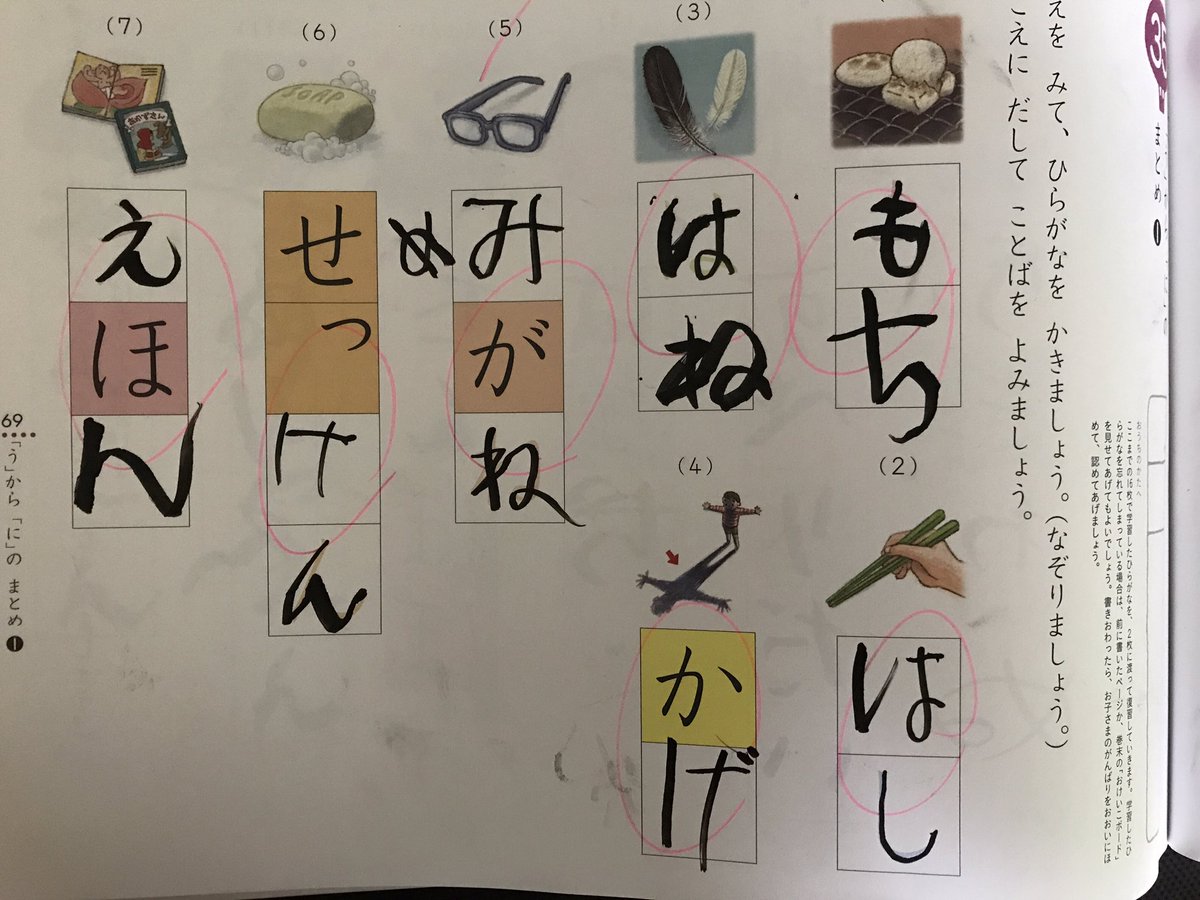 35
まとめ ❶
えを みて、ひらがなを かきましょう。(なぞりましょう。)
こえに だして ことばを よみましょう。
おうちのかたへ
ここまでの16枚で学習したひらがなを、2枚に渡って復習していきます。学習したひ
らがなを忘れてしまっている場合は、前に書いたページか、巻末の「おけいこボード」
を見せてあげてもよいでしょう。書きおわったら、お子さまのがんばりをおおいにほ
めて、認めてあげましょう。
もち
(2)
はし
(3)
はね
(4)
かげ
(5)
みがね
め
(6)
SOAP
せっけん
(7)
あかずきん
えほん
69
「う」から「に」の まとめ ❶